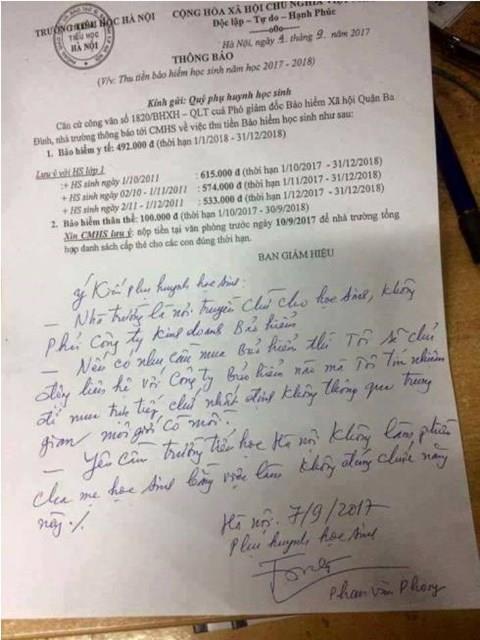 TRƯỜNG TIỂU HỌC HÀ NỘI
CỘNG HÒA XÃ HỘI CHỦ NGHĨA VIỆT NAM
Độc lập - Tự do - Hạnh Phúc
TIỂU HỌC
HÀ NỘI
Hà Nội, ngày 4 tháng 9 năm 2017
THÔNG BÁO
(V/v: Thu tiền bảo hiểm học sinh năm học 2017 - 2018)
Kính gửi: Quý phụ huynh học sinh
Căn cứ công văn số 1820/BHXH – QLT cuả Phó giám đốc Bảo hiểm Xã hội Quận Ba
Đình, nhà trường thông báo tới CMHS về việc thu tiền Bảo hiểm học sinh như sau:
1. Bảo hiểm y tế: 492.000 đ (thời hạn 1/1/2018 - 31/12/2018)
Lưu ý với HS lớp 1
:+ HS sinh ngày 1/10/2011 : 615.000 đ (thời hạn 1/10/2017 - 31/12/2018)
+ HS sinh ngày 02/10 - 1/11/2011 : 574.000 đ (thời hạn 1/11/2017 - 31/12/2018)
+ HS sinh ngày 2/11 - 1/12/2011 : 533.000 đ (thời hạn 1/12/2017 - 31/12/2018)
2. Bảo hiểm thân thể: 100.000 đ (thời hạn 1/10/2017 - 30/9/2018)
Xin CMHS lưu ý: nộp tiền tại văn phòng trước ngày 10/9/2017 để nhà trường tổng
hợp danh sách cấp thẻ cho các con đúng thời hạn.
BAN GIÁM HIỆU
Ý Kiến phụ huynh học sinh:
– Nhà trường là nơi truyền chữ cho học sinh, không
phải Công ty kinh doanh Bảo hiểm
– Nếu có nhu cầu mua Bảo hiểm thì Tôi sẽ chủ
động liên hệ với Công ty Bảo hiểm nào mà Tôi tín nhiệm
để mua trực tiếp, chứ nhất định không thông qua trung
gian, môi giới
– Yêu cầu trường tiểu học Hà Nội không làm phiền
cha mẹ học sinh bằng việc làm không đúng chức năng
này ./.
Hà Nội. 7/9/2017
Phụ huynh học sinh
Phan Văn Phong